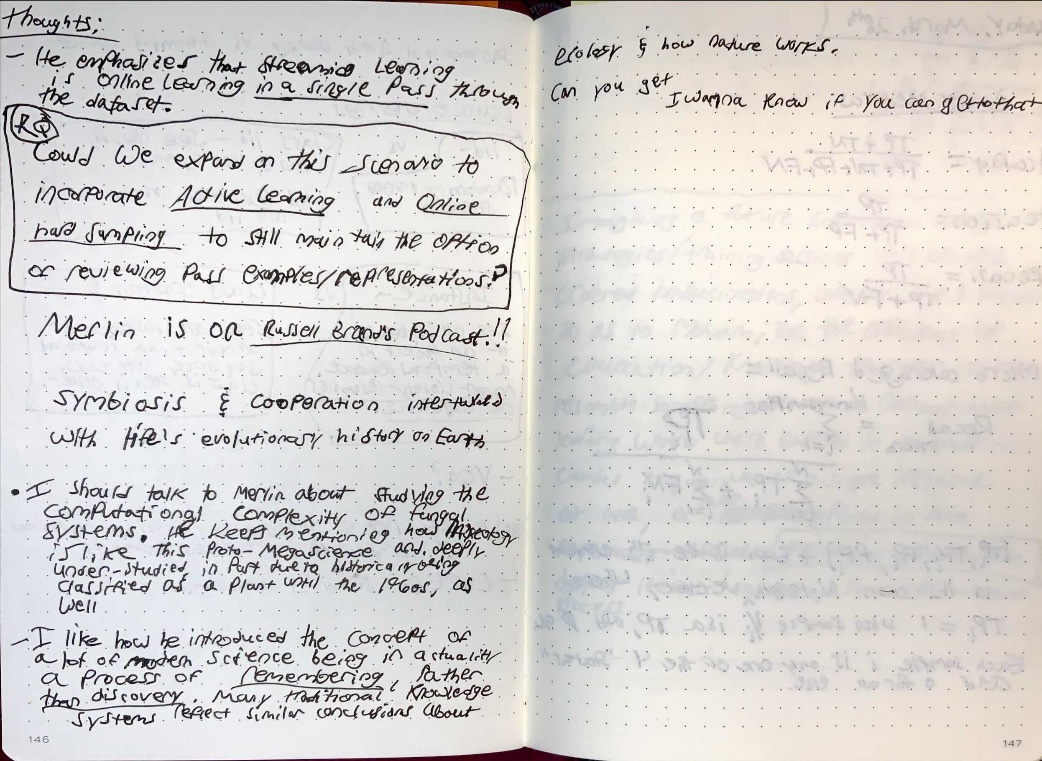 Thoughts:
- He emphasizes that streaming Learning
is Online Learning in a single Pass through
the dataset.
RQ
Could We expand on this Scenario to
incorporate Active Learning and Online
hard sampling to still maintain the option
of reviewing Pass examples/representations?
Merlin is on Russell Brand's Podcast!!
Symbiosis & cooperation intertwined
With life's evolutionary history on Earth
• I should talk to Merlin about studying the
computational complexity of fungal
systems. He keeps mentioning how Mycology
is like this Proto-Megascience and deeply
under-studied in Part due to historically being
classified as a Plant until the 1960s, as
well
- I like how he introduced the concept of
a lot of modern science being in actuality
a process of remembering, Rather
than discovery. Many traditional Knowledge
systems reflect similar conclusions about
146
ecology & how nature works.
Can you get
I wanna know if you can get to that
147